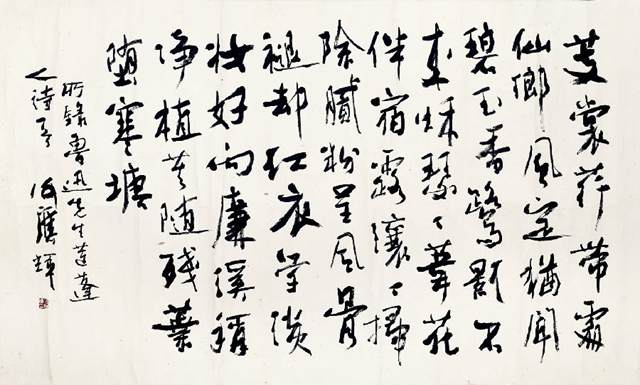 芰裳荇帶處
仙鄉風定猶聞
碧玉香鷺影不
來秋瑟〻葦花
伴宿露瀼〻掃
除膩粉呈風骨
褪却紅衣学淡
妝好向廉溪稱
净植莫随殘葉
堕寒塘
錄魯迅先生蓮蓬
人詩 何應輝